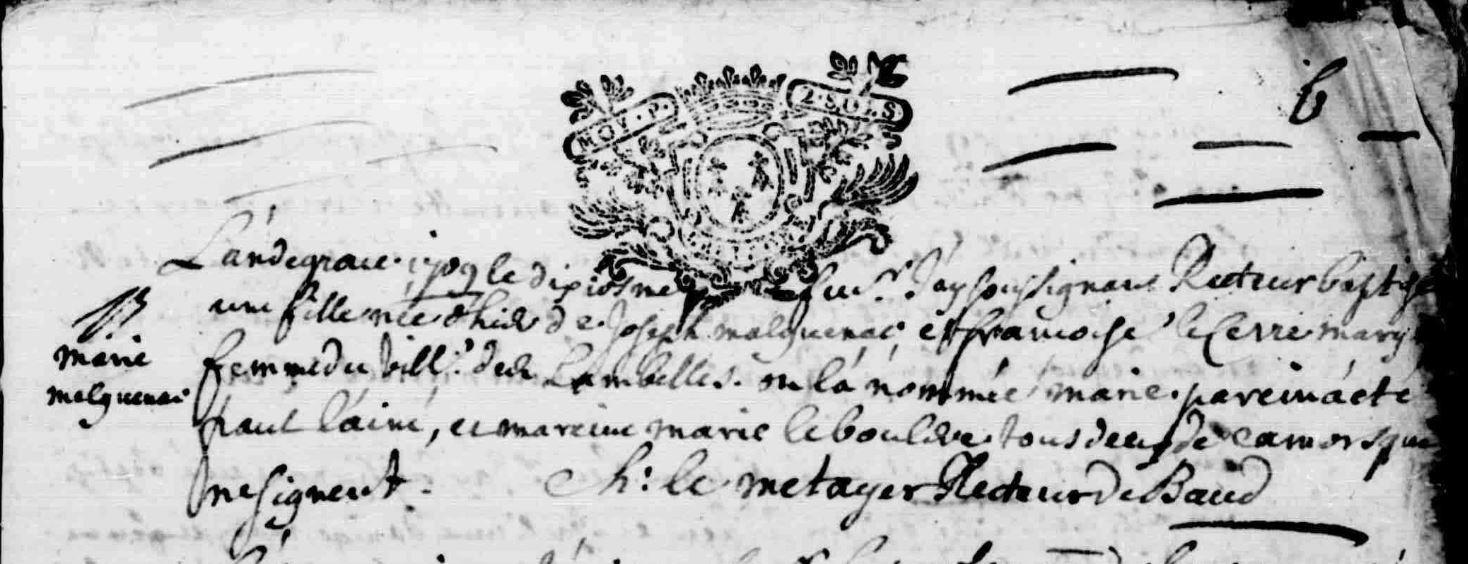 MOY. P. 2. SOLS
L'an de grace 1709 le dixiesme Je soussignant Recteur baptisé
une fille née d'hier de Joseph malguenac et francoise le Cerre mary
femme du vill. de Lambelles. on la nommée marie. parein a eté
paul lainé, et mareine marie le bouldre. tous deux de camors que
ne signent. Ch: le metayer Recteur de Baud
B
marie
malguenac